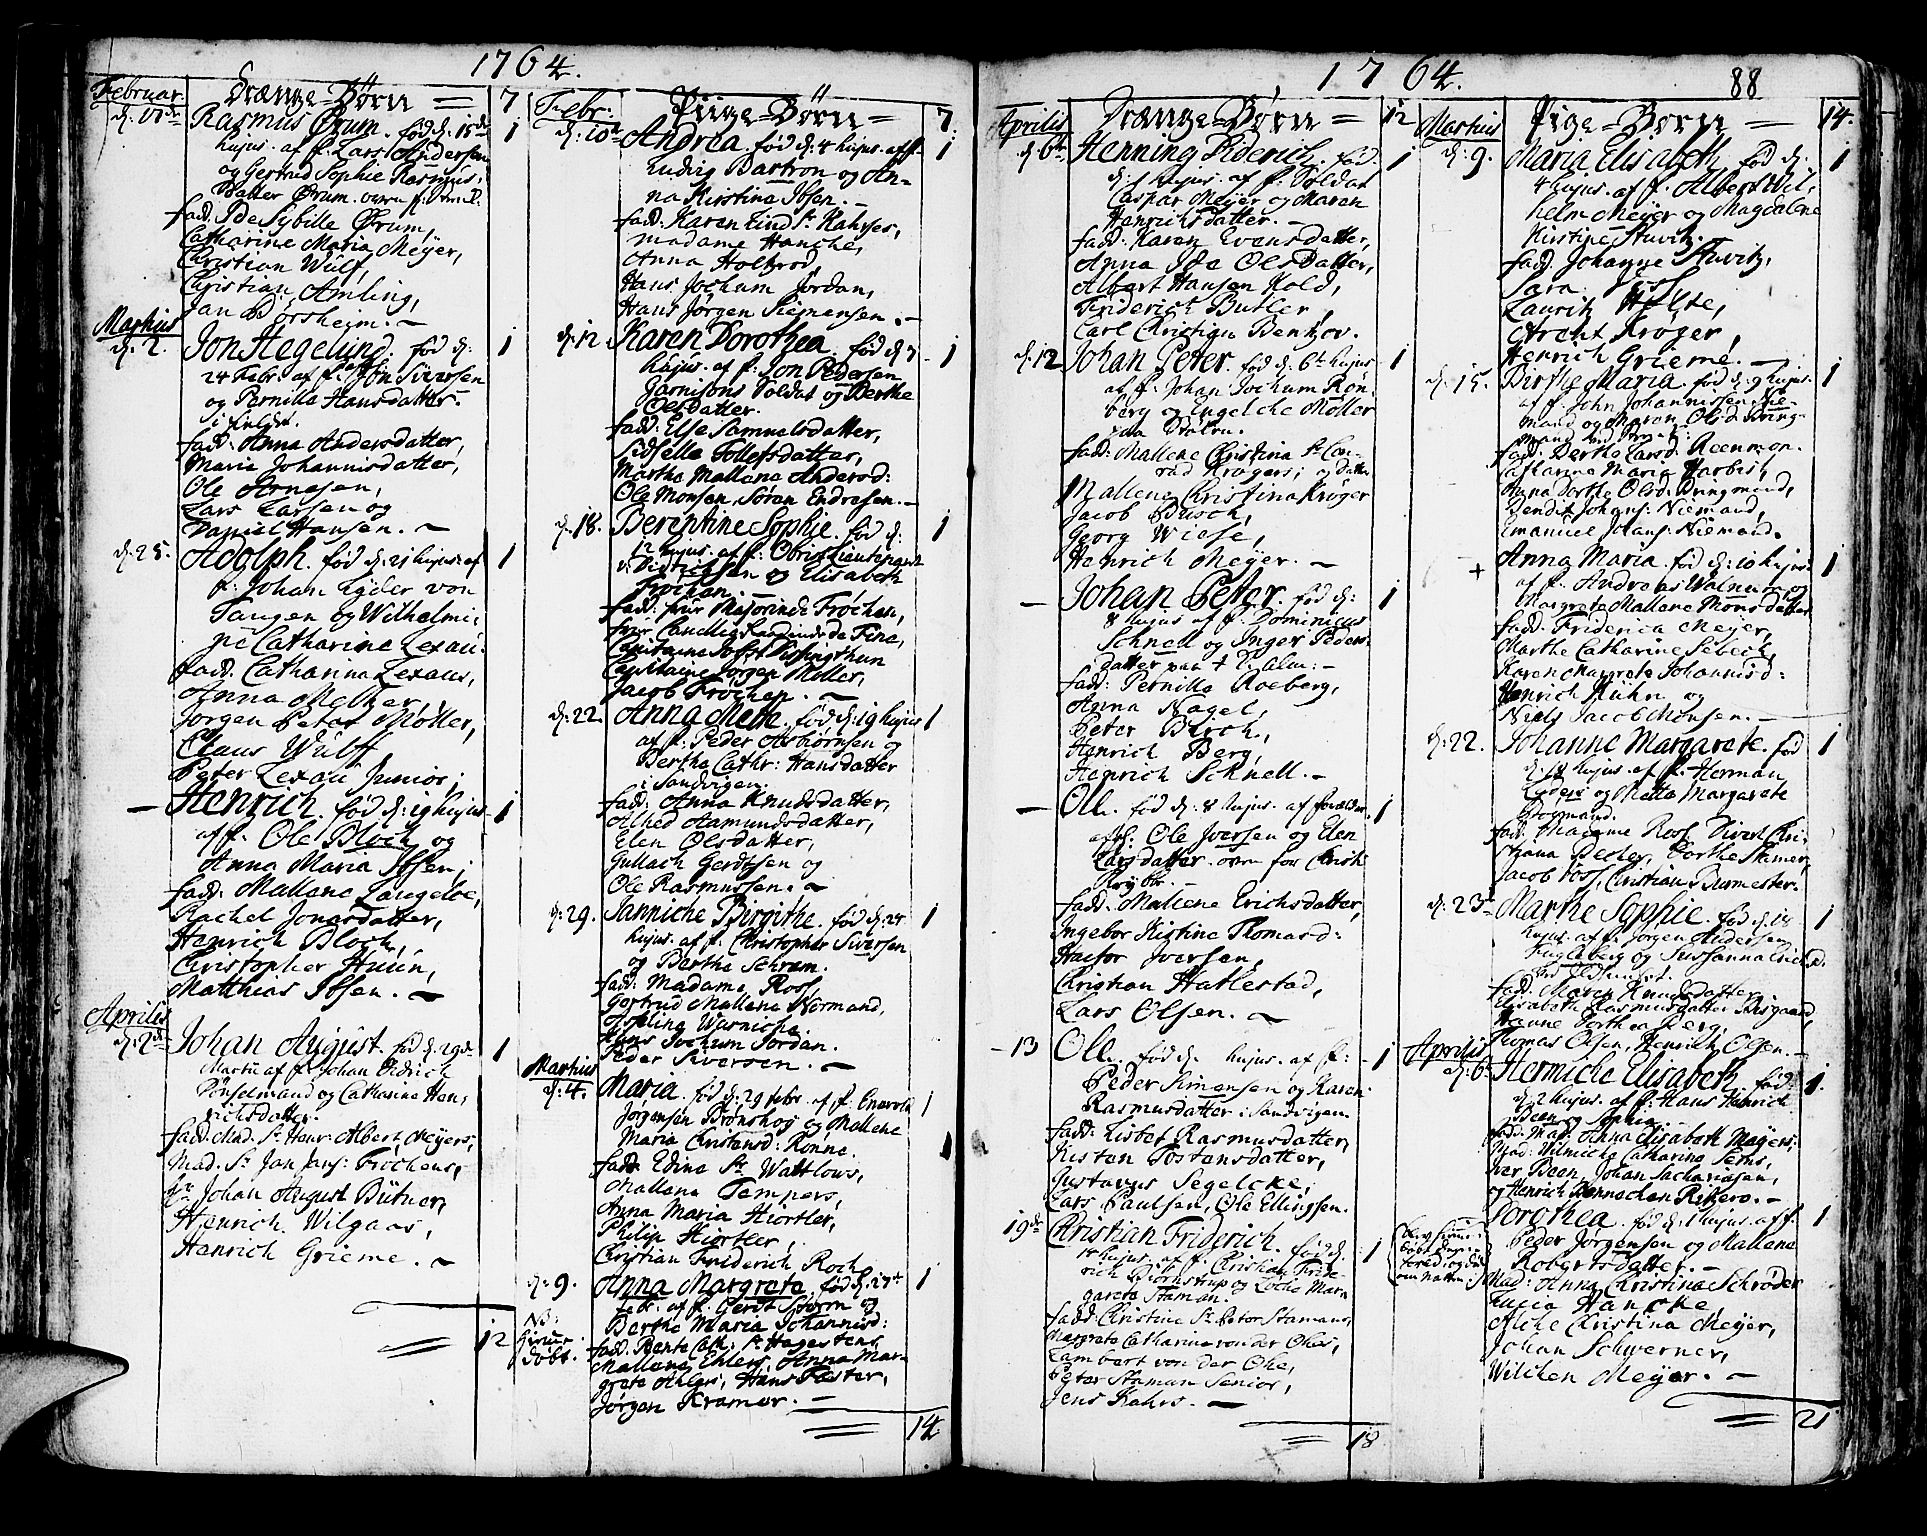 1764.
Februar.
Drænge-Børn =
7
d: 17de
Rasmus Ørum. fød d: 15de
1
hujus. af f. Lars Andersen
og Gertrud Sophie Rasmus:
Datter Ørum.
fadd. Ide Sybille Ørum,
Catharine Maria Meyer,
Christian Wulf,
Christian Amling,
Jan Dorsheim. –
Martius
d: 2.
Jon Hegelund. fød d:
1
24 Febr. af f. Jon Sivertsen
og Pernilla Hansdatter.
fadd: Anna Andersdatter,
Maria Johannisdatter,
Ole Arnesen,
Lars Larsen og
Daniel Hansen. –
d: 25.
Adolph. fød d: 21 hujus. af
1
f: Johan Lyder von
Tangen og Wilhelmi-
ne Catharine Lexau.
fadd: Catharina Lexaus,
Anna Meltzer,
Jørgen Peter Møller,
Claus Wulff,
Peter Lexau Junior;
– Henrich. fød d: 19 hujus
1
af f. Ole Bloch og
Anna Maria Ibsen;
fadd: Mallene Langeloe,
Rachel Jonasdatter,
Henrich Bloch,
Christopher Huun,
Matthias Ibsen. –
Aprilis
d: 2de
Johan August. fød d: 29de
1
Martii af f: Johan Didrich
Pønselmand og Catharine Hen-
richsdatter.
fadd: Mad. Sr Henr: Albert Meyers;
Mad. Sr Jan Jans: Frochens,
Hr Johan August Bütner,
Henrich Wilgaas,
Henrich Grieme. –
12
Febr:
Piige-Børn =
7.
d: 10de
Andrea. fød d: 4 hujus. af f.
1
Ludvig Bastron og An-
na Kirstina Ibsen. –
fadd: Karen Lind Sr Kahrses,
Madame Hanche,
Anna Holtzrod,
Hans Jochum Jordan,
Hans Jørgen Siemensen. –
d: 12
Karen Dorothea. fød d 7
1
hujus. af f: Jon Pedersen
Garnisons Soldat og Berthe
Olsdatter.
fadd: Else Samuelsdatter,
Sidselle Tollefsdatter,
Marthe Mallene Andersd:
Ole Monsen, Søran Endresen. –
d: 18.
Berentine Sophie. fød d:
1
12 hujus. af f: Obrist Lieutingant
v: Didrichsen og Elisabeth
Frochan. –
fadd: frue Majorinde Frøchen,
Capitaine Jørgen Møller,
Jacob Frøchen. –
d: 22.
Anna Meth. fød d: 19 hujus
1
af f: Peder Asbiørnsen og
Berthe Cathr: Hansdatter
i Sandvigen.
fadd: Anna Knudsdatter,
Alhed Aamundsdatter,
Elen Olsdatter,
Gullach Gerdtsen og
Ole Rasmussen. –
d: 29.
Janniche Birgithe. fød d: 24
1
hujus. af f. Christopher Siversen
og Berthe Schram.
fadd: Madame Roos,
Gertrud Mallena Normand,
Hans Jochum Jordan.
Peder Siversen. –
Martius
d: 4.
Maria. fød d: 29 febr. af f. Enevold
1
Jørgensen Brønskog og Mallene
Maria Christensd: Rønne.
1
fadd: Edine Sr Wattlows,
Mallena Tempers,
Anna Maria Hiortler,
Philip Hiortler,
Christian Friderich Roch.
d: 9.
Anna Margreta. fød d: 27de
1
NB:
hiemme
døbt.
Febr. af f. Gerdt Storm og
Berthe Maria Johannisd:
fadd: Bente Cath: Sr Hagestens,
Mallena Ehlers, Anna Mar-
grete Ahlers, Hans Pæster,
Jørgen Kramer. –
14
1764.
88
Aprilis
Drænge-Børn =
12
d: 6te
Henning Diderich. fød.
1
d: 1 hujus. af f: Soldat
Caspar Meyer og Maren
Henrichsdatter. –
fadd: Karen Evensdatter,
Anna Ide Olsdatter,
Albert Hansen Kold,
Friderich Butler,
Carl Christian Bentzov.
d: 12
Johan Peter. fød d: 6te hujus
1
af f. Johan Jochum Røn-
berg og Engelche Møller
fadd: Mallene Christina Sr Con-
rad Krøgers; og datter
Mallene Christina Krøger
Jacob Busch,
Georg Wiese,
Henrich Meyer. –
– Johan Peter. fød d:
1
8 hujus af f. Dominicus
Schnell og Inger Peders-
datter
fadd: Pernilla Roeberg,
Anna Nagel,
Peter Birch,
Henrich Berg,
Henrich Schnell. –
– Olle. fød d: 8 hujus. af forælder
1
af f. Ole Iversen og Elen
Larsdatter.
fadd: Mallene Erichsdatter,
Ingebor Kistine Thomasd:
Haftor Iversen,
Christian Hatlestad,
Lars Olsen. –
– 13
Olle. fød d: hujus. af f:
1
Peder Simensen og Karen
Rasmusdatter i Sandvigen.
fadd: Lisbet Rasmusdatter,
Kisten Tostensdatter,
Gustavus Segelcke,
Lars Paulsen, Ole Ellingsen.
19de
Christian Friderich. fød d:
1
18 hujus. af f. Christian Fride-
rich Biørnstrup og Loche Mar-
gareta Staman.
fadd: Christine Sr Peter Stamans,
Margreta Catharina von der Ohes,
Lambert von der Ohe,
Peter Staman Senior,
Jens Kahrs. –
18
Martius
Pige-Børn =
14.
d: 9.
Maria Elisabeth. fød d:
1
4 hujus. af f. Albert Wil-
helm Meyer og Magdalene
Kirstine Stuvitz.
fadd: Johanne Stuvitz,
Lauritz Holste,
Arent Krøger,
Henrich Grieme. –
d: 15.
Birthe Maria. fød d: 9 hujus.
1
af f. John Johannissen Nie-
mand og Maren Olsd: Bring-
mand
fadd: Berthe Larsd: Reenmon.
Catharine Maria Harbus,
Anna Dorthe Olsd: Bringmand,
Bendit Johans: Niemand,
Emanuel Johans: Niemand.
+ Anna Maria. fød d: 10 hujus.
1
af f. Andreas Walnum og
Margrete Mallene Monsdatter
fadd: Friderica Meyer,
Marthe Catharine Sebech,
Karen Margrete Johannisd:
Henrich Kühn og
Niels Jacob Monsen. –
d: 22.
Johanne Margarete. fød
1
d: 18 hujus. af f. Herman
Lyders og Metta Margarete
fadd: Madame Roos, Divert Chri-
stiana Decker, Dorthe Stamer,
Jacob Foss, Christian Burmester.
d: 23.
Marthe Sophie. fød d: 18
1
hujus. af f. Jørgen Andersen
Fugleberg og Sussanna
fadd. Maren Knudsdatter,
Elisabeth Rasmusdatter Risgaard,
Hanne Dorthea Berg,
Thomas Olsen, Henrich Olsen. –
Aprilis
d: 6te
Hermiche Elisabeth. fød
1.
d: 2 hujus. af f: Hans Henrich
Been og Sophia
fadd: Mad: Anna Elisabeth Mayers,
Mad: Wilmiche Catharine Sems,
Iver Been, Johan Sachariasen,
og Henrich Rennechen Rykers. –
Dorothea. fød d: 1 hujus. af f.
1
Peder Jørgensen og Mallene
Robertsdatter. –
Mad: Anna Christina Schrøder
Lucia Hancke,
Alche Christina Meyer,
Johan Schwerner,
Wilchen Meyer. –
21